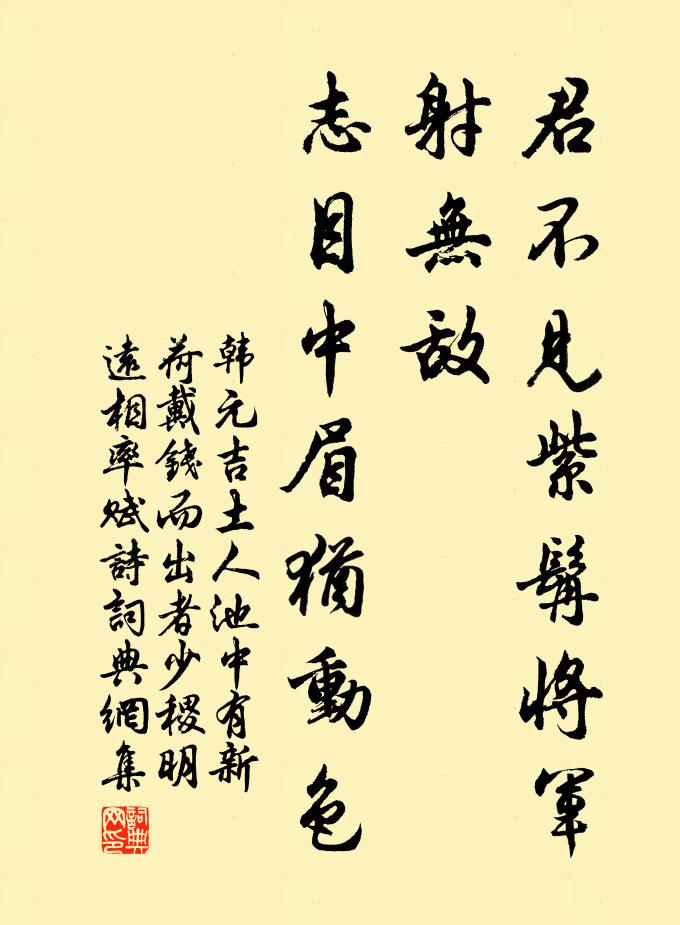 君不見紫髯將軍
射無敌
志目中眉猶動色
韩元吉土人池中有新
荷戴錢而出者少稷明
遠相率賦詩詞典網集
詞典网印